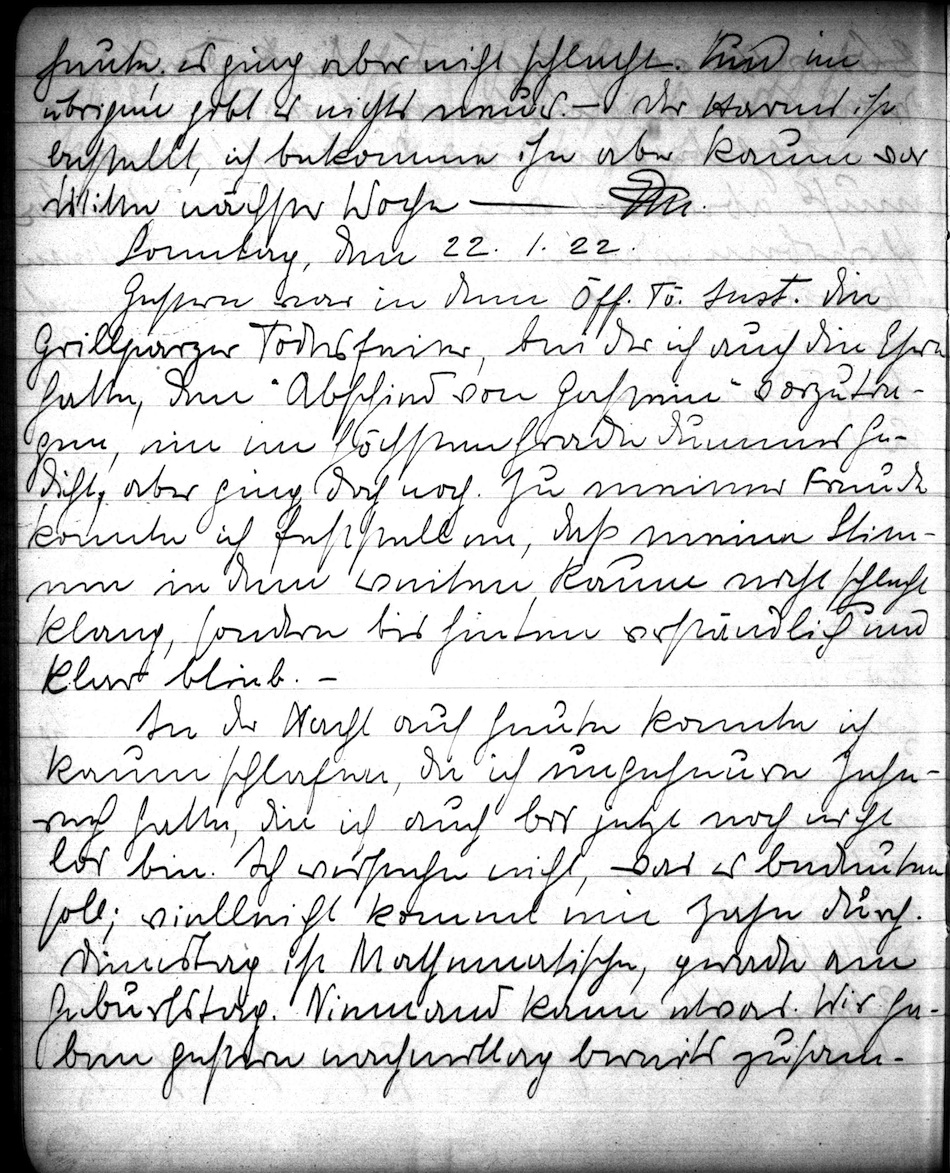 heute, es ging aber nicht schlecht. Und im
übrigen gibt es nichts neues. – Der Harnes ist
bestellt, ich bekomme ihn aber kaum vor
Mitte nächster Woche —
Sonntag, den 22. 1. 22.
Gestern war in dem Öff. Tö. Inst. die
Grillparzer Todesfeier, bei der ich auch die Ehre
hatte, den "Abschied von Gastein" vorzutra-
gen, ein im höchsten Grade dummes Ge-
dicht, aber ging doch noch. Zu meiner Freude
konnte ich feststellen, daß meine Stim-
me in dem weiten Raume nicht schlecht
klang, sondern bis hinten verständlich und
klar blieb. –
In der Nacht auf heute konnte ich
kaum schlafen, da ich ungeheure Zahn-
weh hatte, die ich auch bis jetzt noch nicht
los bin. Ich verstehe nicht, was es bedeuten
soll; vielleicht kommt ein Zahn durch.
Dienstag ist Mathematische, gerade am
Geburtstag. Niemand kann etwas. Wir ha-
ben gestern nachmittag bereits zusam-